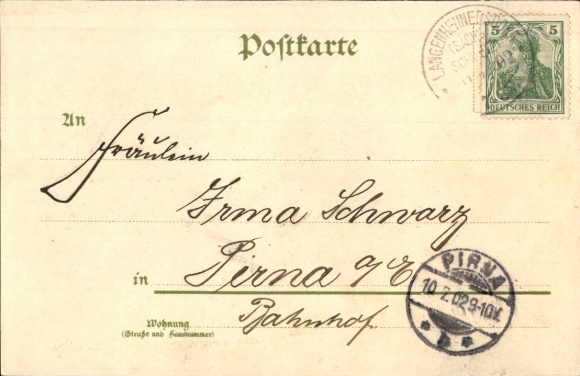 Postkarte
5 5
DEUTSCHES REICH
LANGENHENNERSDORF
An
Fräulein
Irma Schwarz
in Pirna a/E
Bahnhof
Wohnung
(Straße und Hausnummer)
PIRNA
10.7.02.9-10V.